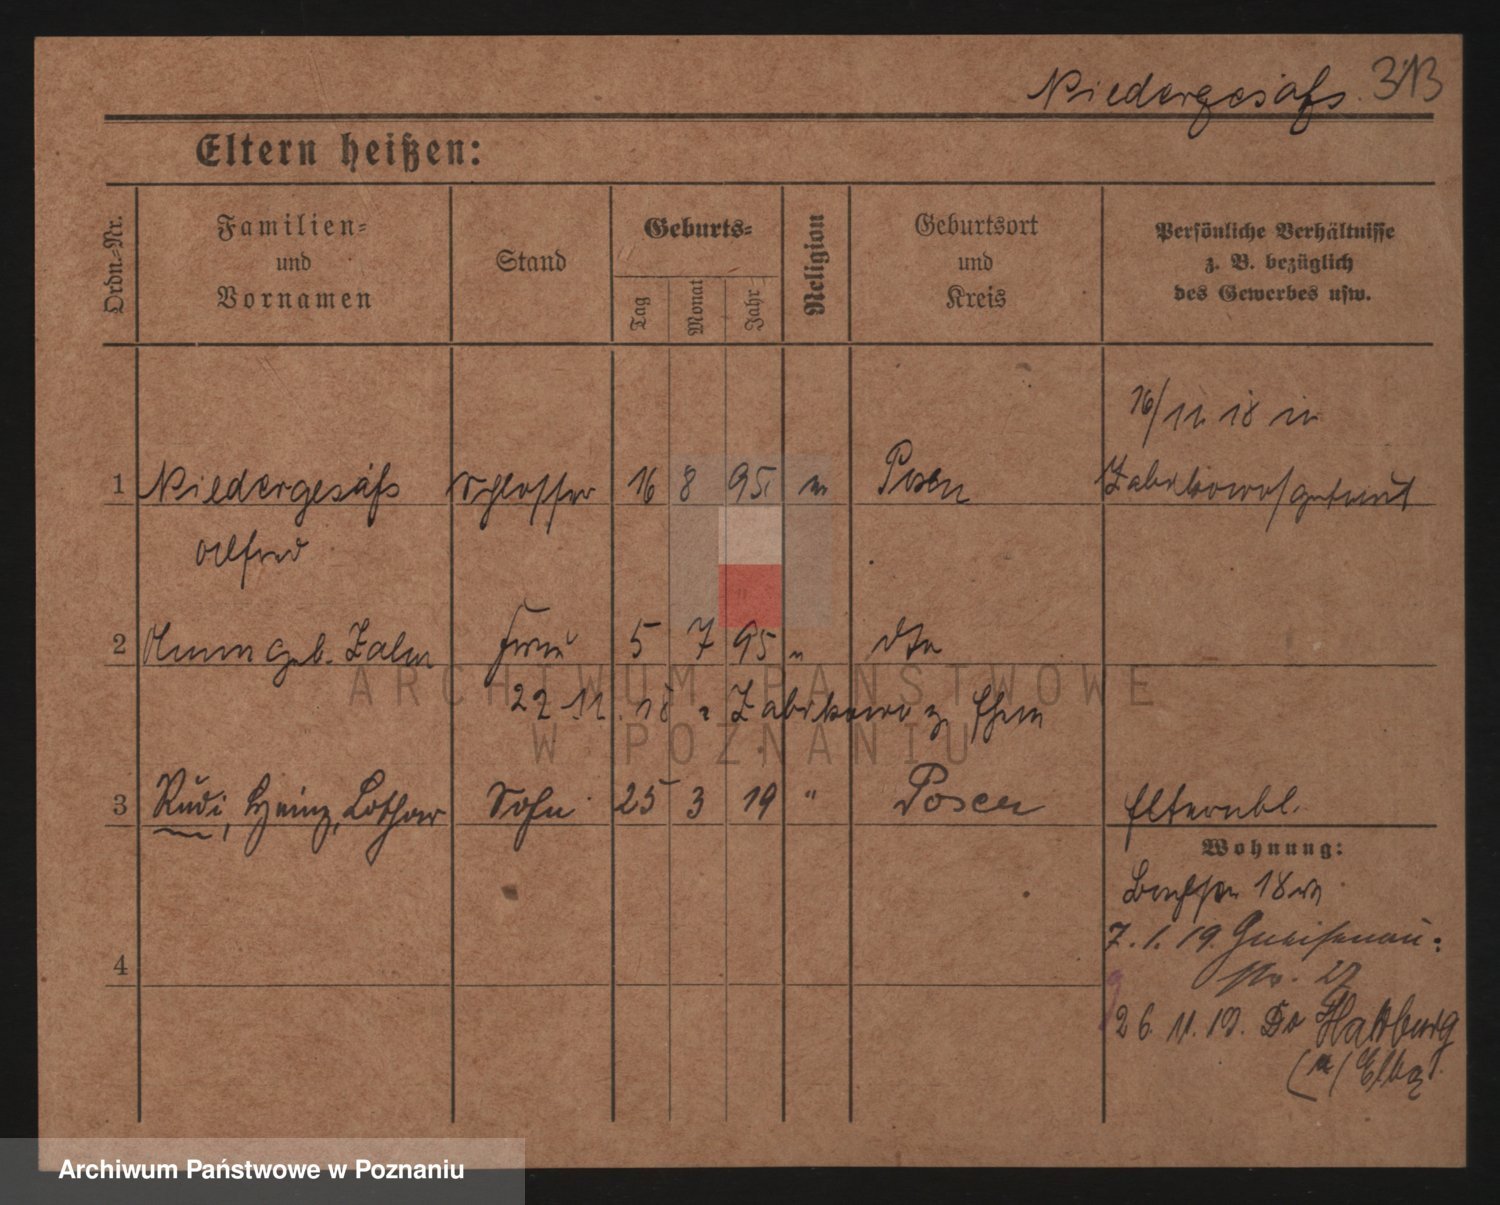 Niedergesäfs. 313
Eltern heißen:
Ordn.=Nr.
Familien=
und
Vornamen
Stand
Geburts=
Tag
Monat
Jahr
Religion
Geburtsort
und
Kreis
Persönliche Verhältnisse
z. B. bezüglich
des Gewerbes usw.
16/11 18 in
1 Niedergesäfs Schlosser 16 8 95 Posen Zabikowo getraut
Alfred
2 geb. Frau 5 7 95 " dto
22 11. 18 Zabikowo z Ehe
3 Rudi, Heinz, Lothar Sohn 25 3 19 " Posen Elternbl.
Wohnung:
18
7. 1. 19. Gneisenau=
str. 27
4
26. 11. 19. Harburg
(a/Elbe)
ARCHIWUM PAŃSTWOWE
W POZNANIU
Archiwum Państwowe w Poznaniu